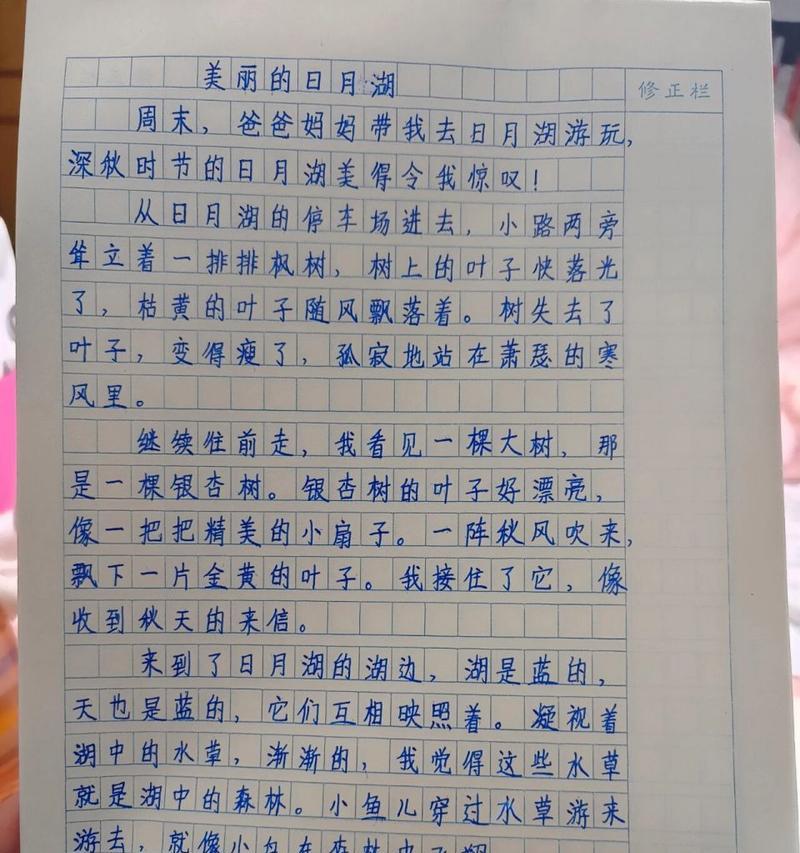 美丽的日月湖
修正栏
周末，爸爸妈妈带我去日月湖游玩，
深秋时节的日月湖美得令我惊叹！
从日月湖的停车场进去，小路两旁
耸立着一排排枫树，树上的叶子快落光
了，枯黄的叶子随风飘落着。树失去了
叶子，变得瘦了，孤寂地站在萧瑟的寒
风里。
继续往前走，我看见一棵大树，那
是一棵银杏树。银杏树的叶子好漂亮，
像一把把精美的小扇子。一阵秋风吹来，
飘下一片金黄的叶子。我接住了它，像
收到秋天的来信。
来到了日月湖的湖边，湖是蓝的，
天也是蓝的，它们互相映照着。凝视着
湖中的水草，渐渐的，我觉得这些水草
就是湖中的森林。小鱼儿穿过水草游来
游去，就像小鸟在森林中飞翔